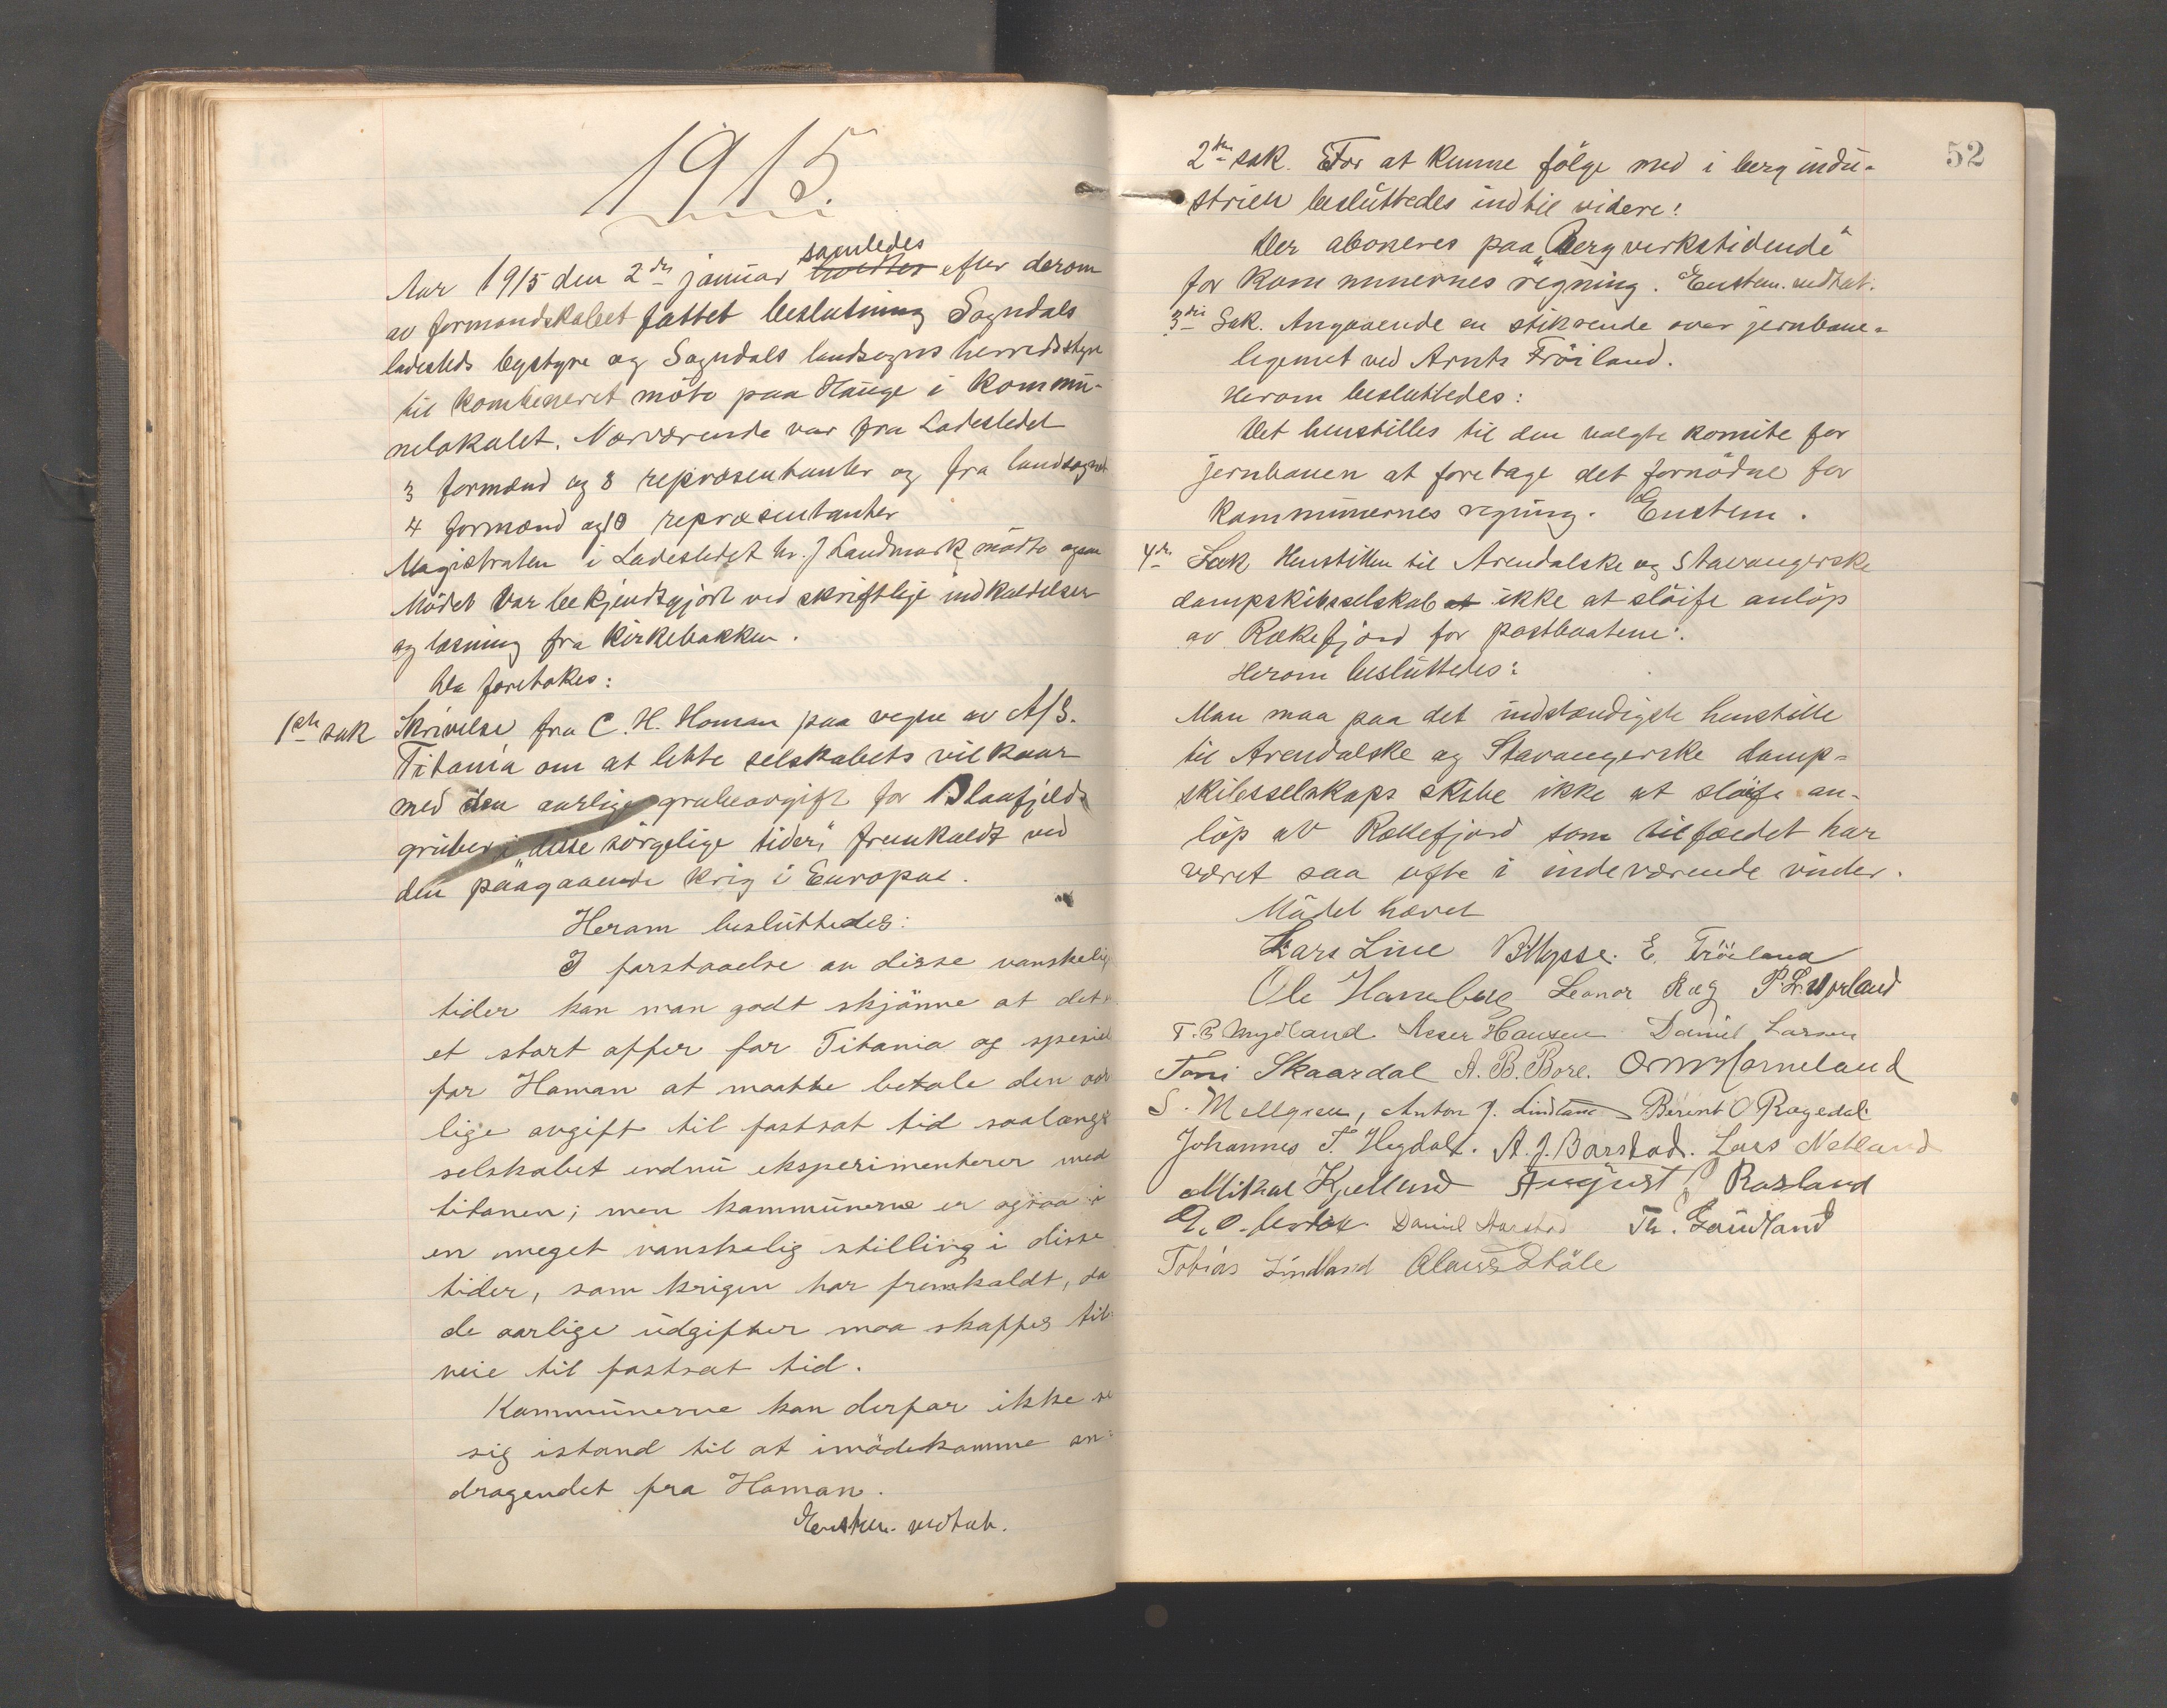 1915.
Aar 1915 den 2den januar samledes efter derom
av formandskabet fattet beslutning Sogndals
ladesteds bystyre og Sogndals landsogns herredsstyre
til kombineret möte paa Hauge i kommu-
nelokalet. Nærværende var fra Ladestedet
3 formænd og 8 repræsentanter og fra landsognet
4 formænd og 10 repræsentanter
Magistraten i Ladestedet hr. J Landmark mödte ogsaa
Mödet var bekjendtgjort ved skriftlige indkaldelser
og læsning fra kirkebakken.
Da foretokes:
1ste sak Skrivelse fra C. H. Homan paa vegne av A/S.
Titania om at lette selskabets vilkaar
med den aarlige grubeavgift for Blaafjelds
gruber i "disse sörgelige tider," fremkaldt ved
den paagaaende krig i Europa.
Herom besluttedes:
I forstaaelse av disse vanskelige
tider kan man godt skjönne at det er
et stort offer for Titania og spesielt
for Homan at maatte betale den aar
lige avgift til fastsat tid saalænge
selskabet endnu eksperimenterer med
titanen; men kommunerne er ogsaa i
en meget vanskelig stilling i disse
tider, som krigen har fremkaldt, da
de aarlige udgifter maa skaffes til-
veie til fastsat tid.
Kommunerne kan derfor ikke se
sig istand til at imödekomme an-
dragendet fra Homan.
Enstem. vedtat.
52
2den sak. For at kunne fölge med i bergindu-
strien besluttedes indtil videre:
Der aboneres paa "Bergverkstidende"
for kommunernes regning. Enstem. vedtat.
3die Sak. Angaaende en stikrende over jernbane-
legemet ved Arnts Fröiland.
Herom besluttedes:
Det henstilles til den valgte komite for
jernbanen at foretage det fornödne for
kommunernes regning. Enstem.
4de Sak Henstillen til Arendalske og Stavangerske
dampskibsselskab at ikke at slöife anlöp
av Rækefjord for postbaatene.
Herom besluttedes:
Man maa paa det indstændigste henstille
til Arendalske og Stavangerske damp-
skibsselskaps skibe ikke at slöife an-
löp av Rækefjord som tilfældet har
været saa ofte i indeværende vinter.
Mödet hævet
Lars Line E. Fröiland
Ole Hanneberg Leonor Ræg
T. B Mydland Asser Hansen Daniel Larsen
Toni Skaardal A. B. Bore.
S. Mellgren, Anton J. Lindland Berent O Rægedal
Johannes T. Hegdal. A. J. Barstad. Lars Netland
Mikal Kjelland August Rosland
Daniel Aarstad Th. Gaudland
Tobias Lindland Olaus Stöle